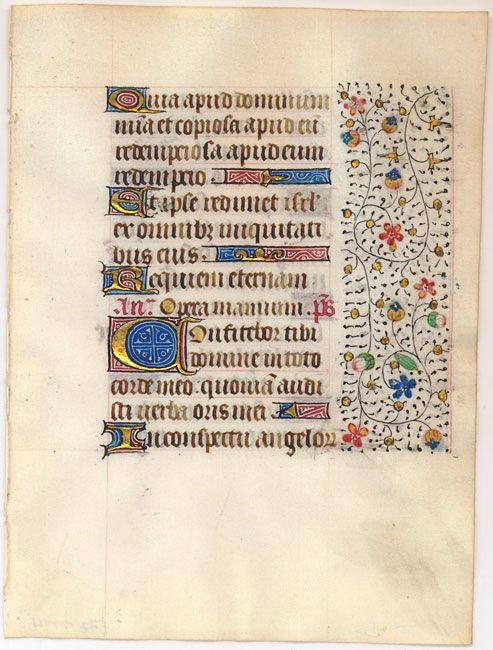 Quia apud dominum
mia et copiosa apud eū
redempcio sa apud eum
redempcio.
Et ipse redimet isrl̄
ex omnibꝫ iniquitati
bus eius.
Requiem eternam
An̄. Opera manuum. p̄s
Confitebor tibi
domine in toto
corde meo. quoniā audi
sti verba oris mei.
In conspectu angelorꝫ